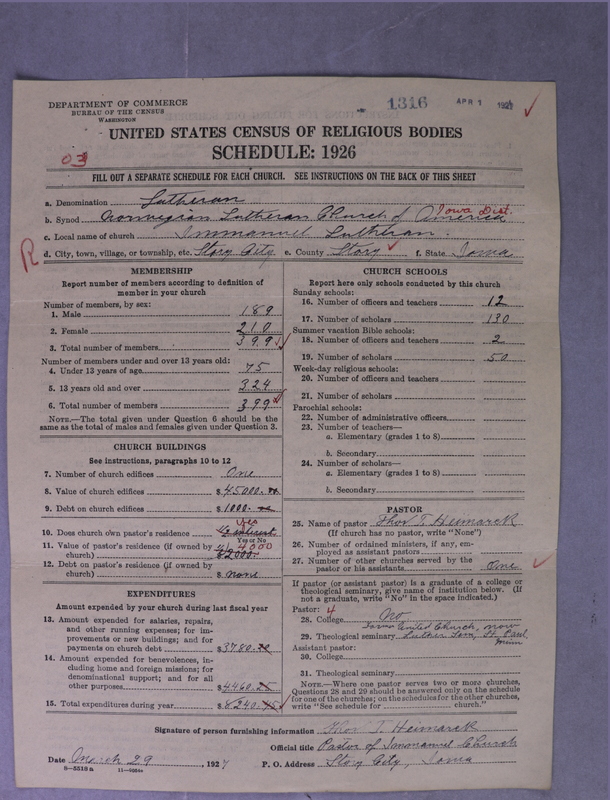 DEPARTMENT OF COMMERCE
BUREAU OF THE CENSUS
WASHINGTON
1316
APR 1 1927
UNITED STATES CENSUS OF RELIGIOUS BODIES
SCHEDULE: 1926
03
FILL OUT A SEPARATE SCHEDULE FOR EACH CHURCH. SEE INSTRUCTIONS ON THE BACK OF THIS SHEET
a. Denomination Lutheran
b. Synod Norwegian Lutheran Church of America Iowa Dist.
c. Local name of church Immanuel Lutheran
R
d. City, town, village, or township, etc. Story City e. County Story f. State Iowa
MEMBERSHIP
Report number of members according to definition of
member in your church
Number of members, by sex:
1. Male 189
2. Female 210
3. Total number of members 399
Number of members under and over 13 years old:
4. Under 13 years of age 75
5. 13 years old and over 324
6. Total number of members 399
NOTE.—The total given under Question 6 should be the
same as the total of males and females given under Question 3.
CHURCH BUILDINGS
See instructions, paragraphs 10 to 12
7. Number of church edifices One
8. Value of church edifices $45000.
9. Debt on church edifices $1000.
10. Does church own pastor's residence? yes 1/2 interest
Yes or No
11. Value of pastor's residence (if owned by
church) $ 4000
12. Debt on pastor's residence (if owned by
church) $ none
EXPENDITURES
Amount expended by your church during last fiscal year
13. Amount expended for salaries, repairs,
and other running expenses; for im-
provements or new buildings; and for
payments on church debt $3780.
14. Amount expended for benevolences, in-
cluding home and foreign missions; for
denominational support; and for all
other purposes $4460.25
15. Total expenditures during year $8240.
CHURCH SCHOOLS
Report here only schools conducted by this church
Sunday schools:
16. Number of officers and teachers 12
17. Number of scholars 130
Summer vacation Bible schools:
18. Number of officers and teachers 2
19. Number of scholars 50
Week-day religious schools:
20. Number of officers and teachers
21. Number of scholars
Parochial schools:
22. Number of administrative officers
23. Number of teachers—
a. Elementary (grades 1 to 8)
b. Secondary
24. Number of scholars—
a. Elementary (grades 1 to 8)
b. Secondary
PASTOR
25. Name of pastor Thor T. Heimarck
(If church has no pastor, write "None")
26. Number of ordained ministers, if any, em-
ployed as assistant pastors
27. Number of other churches served by the
pastor or his assistants One
If pastor (or assistant pastor) is a graduate of a college or
theological seminary, give name of institution below. (If
not a graduate, write "No" in the space indicated.)
Pastor: 4
28. College No
United Church, now
29. Theological seminary Luther Sem, St. Paul
Minn
Assistant pastor:
30. College
31. Theological seminary
NOTE.—Where one pastor serves two or more churches,
Questions 28 and 29 should be answered only on the schedule
for one of the churches; on the schedules for the other churches,
write "See schedule for church."
Signature of person furnishing information Thor T. Heimarck
Official title Pastor of Immanuel Church
Date March 29, 1927 P. O. Address Story City, Iowa
8—5518a